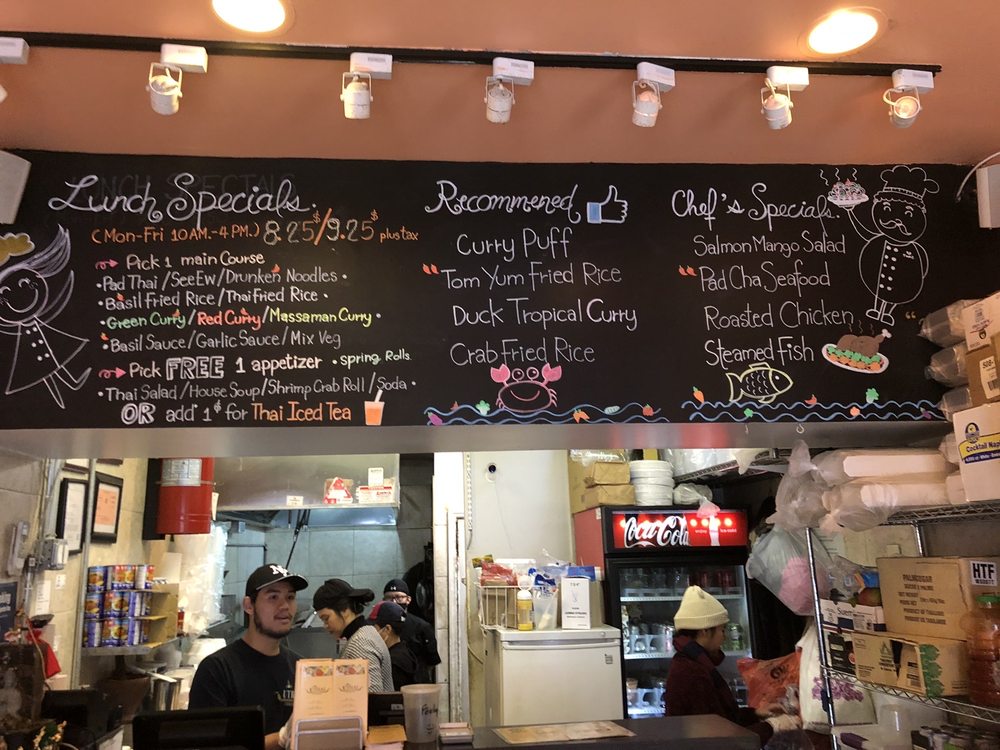 Lunch Specials.
(Mon-Fri 10AM.-4PM.) 8.25$/9.25$ plus tax
Pick 1 main Course
• Pad Thai / See Ew / Drunken Noodles •
• Basil Fried Rice / Thai Fried Rice •
• Green Curry / Red Curry / Massaman Curry •
• Basil Sauce / Garlic Sauce / Mix Veg
Pick FREE 1 appetizer • Spring Rolls.
• Thai Salad / House Soup / Shrimp Crab Roll / Soda •
OR add 1$ for Thai Iced Tea
Recommened
Curry Puff
Tom Yum Fried Rice
Duck Tropical Curry
Crab Fried Rice
Chef's Specials.
Salmon Mango Salad
Pad Cha Seafood
Roasted Chicken
Steamed Fish
Coca-Cola
Cocktail Nap
HTF
PALM SUGAR